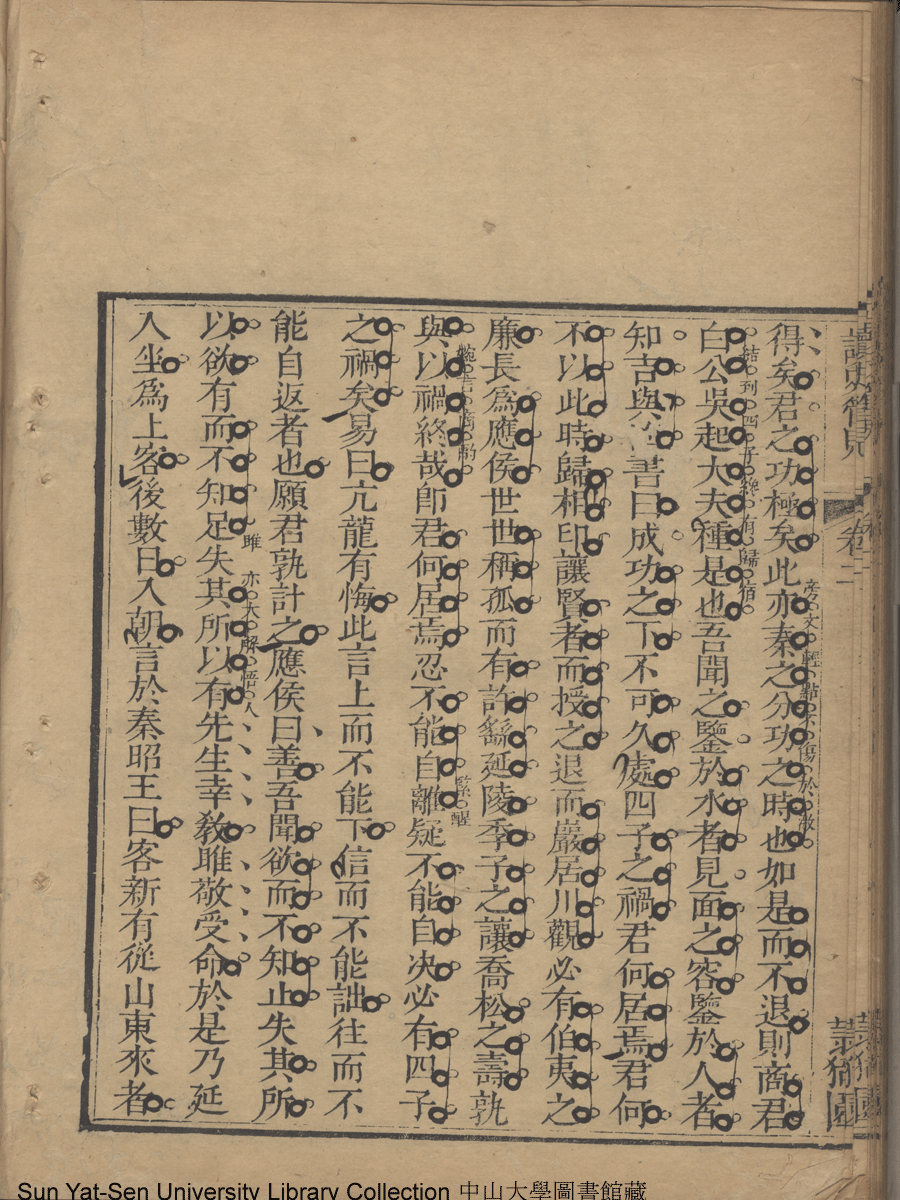 卷二
得矣君之功極矣此亦秦之分功之時也如是而不退則商君
旁文輕點不傷於
白公吳起大夫種是也吾聞之鑒於水者見面之容鑒於人者
結到四子終有歸宿
知吉與書曰成功之下不可久處四子之禍君何居焉君何
不以此時歸相印讓賢者而授之退而巖居川觀必有伯夷之
廉長爲應侯世世稱孤而有許繇延陵季子之讓喬松之壽孰
與以禍終哉卽君何居焉忍不能自離疑不能自决必有四子
緊醒
之禍矣易曰亢龍有悔此言上而不能下信而不能詘往而不
能自返者也願君孰計之應侯曰善吾聞欲而不知止失其所
以欲有而不知足失其所以有先生幸敎雎敬受命於是乃延
雎亦大解悟人
入坐爲上客後數日入朝言於秦昭王曰客新有從山東來者
Sun Yat-Sen University Library Collection 中山大學圖書館藏